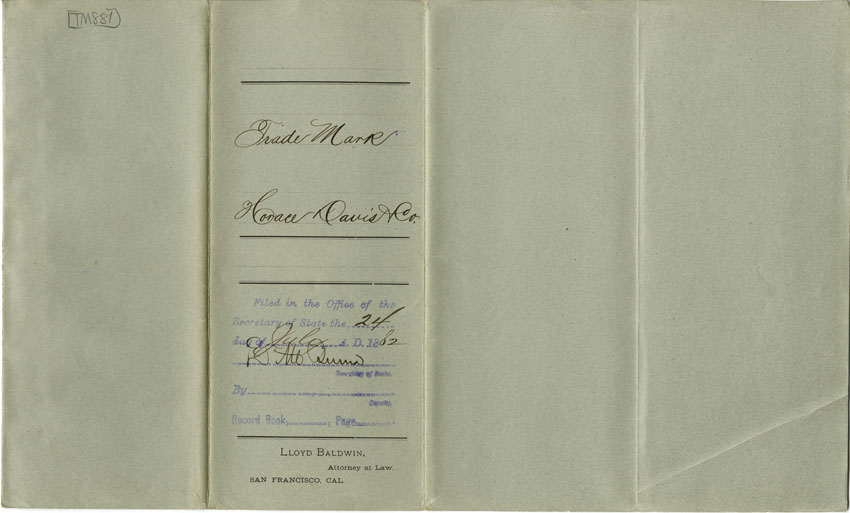 TM887
Trade Mark
Horace Davis & Co.
Filed in the Office of the
Secretary of State the 24
day of July A. D. 1882
Secretary of State.
By
Deputy.
Record Book, Page
LLOYD BALDWIN,
Attorney at Law.
SAN FRANCISCO, CAL.